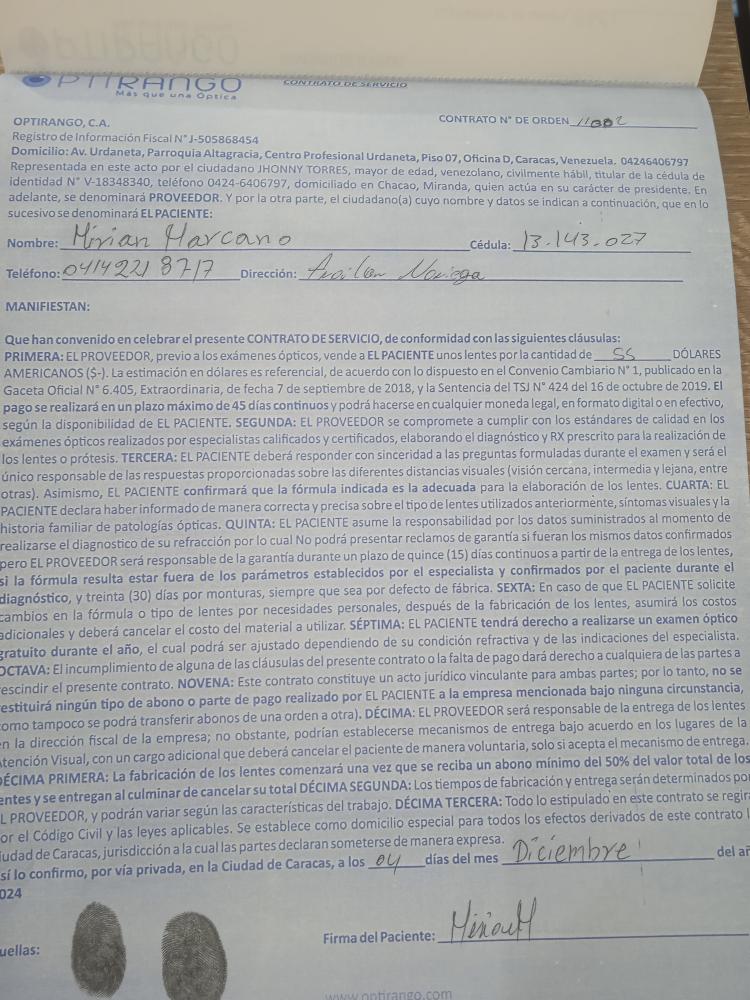 OPTIRANGO
Más que una Óptica
CONTRATO DE SERVICIO
CONTRATO N° DE ORDEN 11002
OPTIRANGO, C.A.
Registro de Información Fiscal N° J-505868454
Domicilio: Av. Urdaneta, Parroquia Altagracia, Centro Profesional Urdaneta, Piso 07, Oficina D, Caracas, Venezuela. 04246406797
Representada en este acto por el ciudadano JHONNY TORRES, mayor de edad, venezolano, civilmente hábil, titular de la cédula de
identidad N° V-18348340, teléfono 0424-6406797, domiciliado en Chacao, Miranda, quien actúa en su carácter de presidente. En
adelante, se denominará PROVEEDOR. Y por la otra parte, el ciudadano(a) cuyo nombre y datos se indican a continuación, que en lo
sucesivo se denominará EL PACIENTE:
Nombre: Mirian Marcano Cédula: 13.143.027
Teléfono: 0414221 8717 Dirección:
MANIFIESTAN:
Que han convenido en celebrar el presente CONTRATO DE SERVICIO, de conformidad con las siguientes cláusulas:
PRIMERA: EL PROVEEDOR, previo a los exámenes ópticos, vende a EL PACIENTE unos lentes por la cantidad de 55 DÓLARES
AMERICANOS ($-). La estimación en dólares es referencial, de acuerdo con lo dispuesto en el Convenio Cambiario N° 1, publicado en la
Gaceta Oficial N° 6.405, Extraordinaria, de fecha 7 de septiembre de 2018, y la Sentencia del TSJ N° 424 del 16 de octubre de 2019. El
pago se realizará en un plazo máximo de 45 días continuos y podrá hacerse en cualquier moneda legal, en formato digital o en efectivo,
según la disponibilidad de EL PACIENTE. SEGUNDA: EL PROVEEDOR se compromete a cumplir con los estándares de calidad en los
exámenes ópticos realizados por especialistas calificados y certificados, elaborando el diagnóstico y RX prescrito para la realización de
los lentes o prótesis. TERCERA: EL PACIENTE deberá responder con sinceridad a las preguntas formuladas durante el examen y será el
único responsable de las respuestas proporcionadas sobre las diferentes distancias visuales (visión cercana, intermedia y lejana, entre
otras). Asimismo, EL PACIENTE confirmará que la fórmula indicada es la adecuada para la elaboración de los lentes. CUARTA: EL
PACIENTE declara haber informado de manera correcta y precisa sobre el tipo de lentes utilizados anteriormente, síntomas visuales y la
historia familiar de patologías ópticas. QUINTA: EL PACIENTE asume la responsabilidad por los datos suministrados al momento de
realizarse el diagnostico de su refracción por lo cual No podrá presentar reclamos de garantía si fueran los mismos datos confirmados
pero EL PROVEEDOR será responsable de la garantía durante un plazo de quince (15) días continuos a partir de la entrega de los lentes,
si la fórmula resulta estar fuera de los parámetros establecidos por el especialista y confirmados por el paciente durante el
diagnóstico, y treinta (30) días por monturas, siempre que sea por defecto de fábrica. SEXTA: En caso de que EL PACIENTE solicite
cambios en la fórmula o tipo de lentes por necesidades personales, después de la fabricación de los lentes, asumirá los costos
adicionales y deberá cancelar el costo del material a utilizar. SÉPTIMA: EL PACIENTE tendrá derecho a realizarse un examen óptico
gratuito durante el año, el cual podrá ser ajustado dependiendo de su condición refractiva y de las indicaciones del especialista.
OCTAVA: El incumplimiento de alguna de las cláusulas del presente contrato o la falta de pago dará derecho a cualquiera de las partes a
rescindir el presente contrato. NOVENA: Este contrato constituye un acto jurídico vinculante para ambas partes; por lo tanto, no se
restituirá ningún tipo de abono o parte de pago realizado por EL PACIENTE a la empresa mencionada bajo ninguna circunstancia,
como tampoco se podrá transferir abonos de una orden a otra). DÉCIMA: EL PROVEEDOR será responsable de la entrega de los lentes
en la dirección fiscal de la empresa; no obstante, podrían establecerse mecanismos de entrega bajo acuerdo en los lugares de la
Atención Visual, con un cargo adicional que deberá cancelar el paciente de manera voluntaria, solo si acepta el mecanismo de entrega.
DÉCIMA PRIMERA: La fabricación de los lentes comenzará una vez que se reciba un abono mínimo del 50% del valor total de los
entes y se entregan al culminar de cancelar su total DÉCIMA SEGUNDA: Los tiempos de fabricación y entrega serán determinados por
L PROVEEDOR, y podrán variar según las características del trabajo. DÉCIMA TERCERA: Todo lo estipulado en este contrato se regirá
or el Código Civil y las leyes aplicables. Se establece como domicilio especial para todos los efectos derivados de este contrato l
iudad de Caracas, jurisdicción a la cual las partes declaran someterse de manera expresa.
sí lo confirmo, por vía privada, en la Ciudad de Caracas, a los 04 días del mes Diciembre del añ
024
uellas:
Firma del Paciente:
www.optirango.com